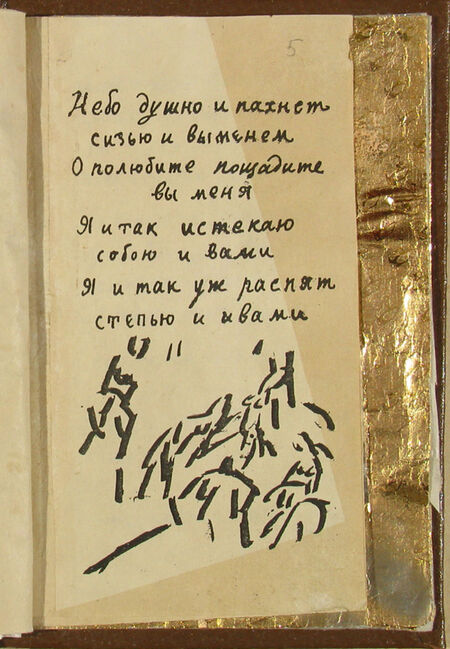 5
Небо душно и пахнет
сизью и выменем
О полюбите пощадите
вы меня
Я и так истекаю
собою и вами
Я и так уж распят
степью и ивами